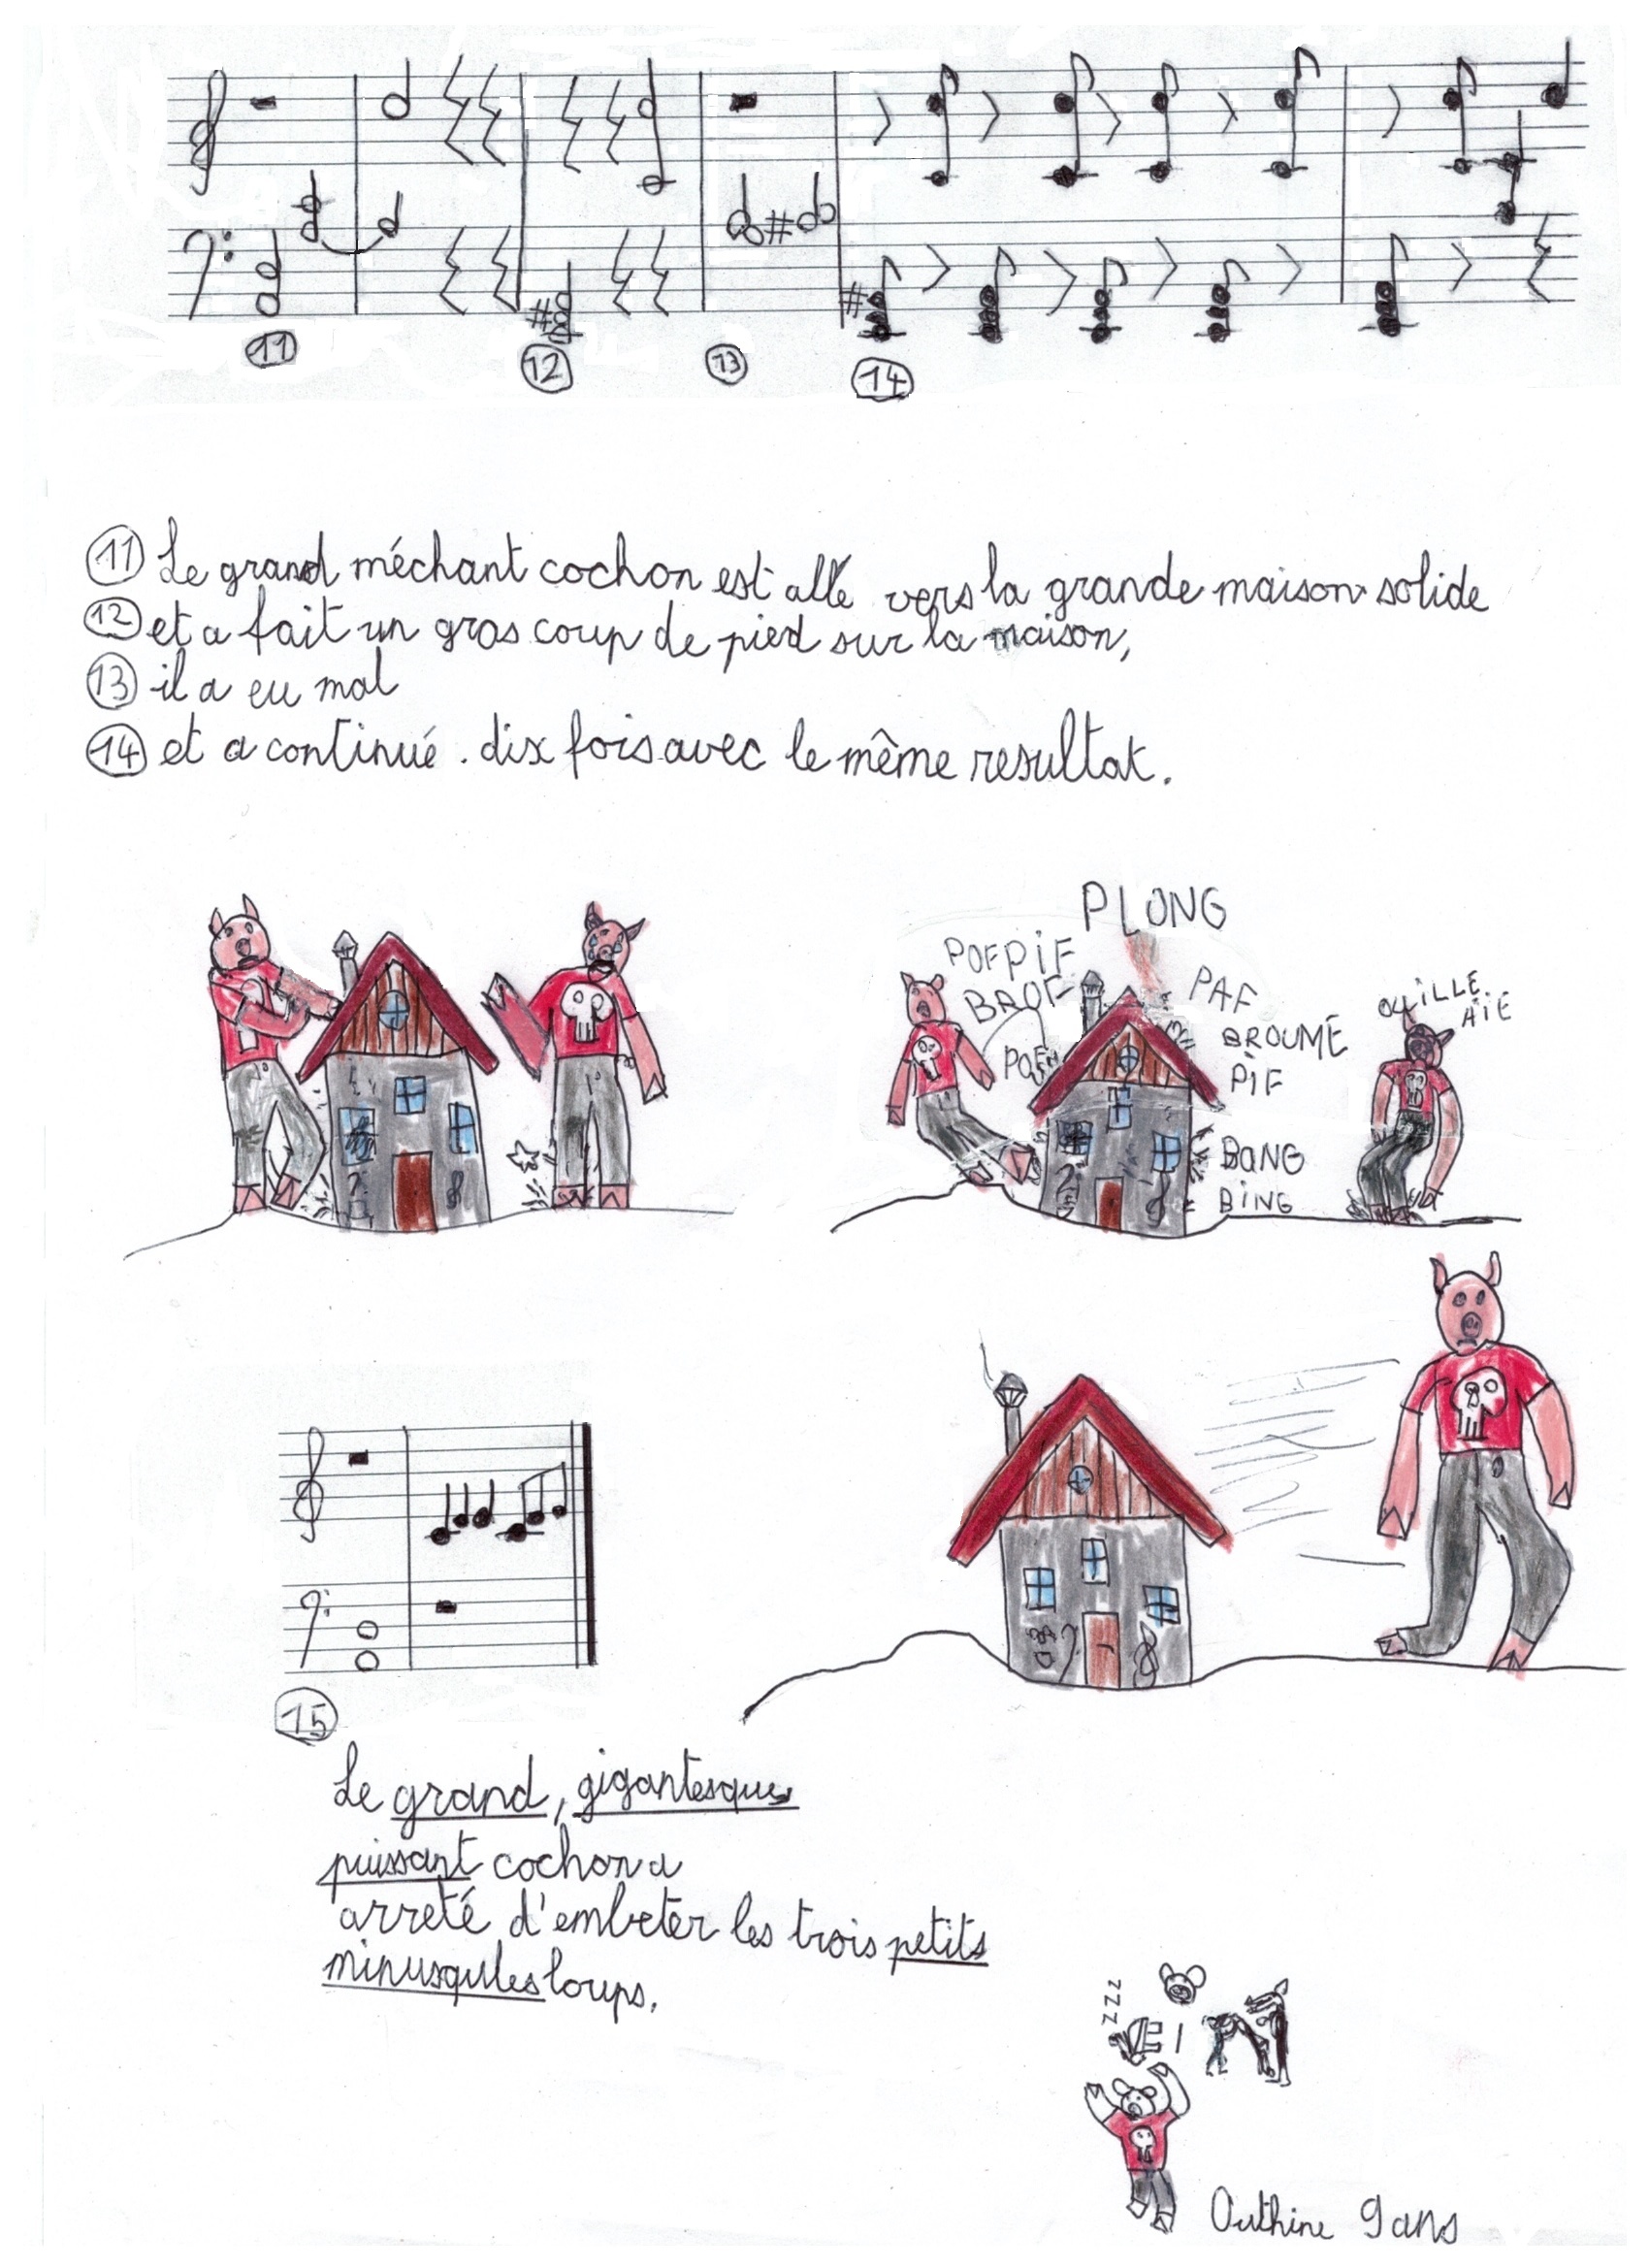 11 12 13 14
11 Le grand méchant cochon est allé vers la grande maison solide
12 et a fait un gros coup de pied sur la maison,
13 il a eu mal
14 et a continué. dix fois avec le même resultat.
PLONG
POF PIF
BROF
POF
PAF
BROUME
PIF
BANG
BING
OUILLE
AIE
15
Le grand, gigantesque
puissant cochon a
arreté d'embeter les trois petits
minusqules loups.
ZZZ
9 ans